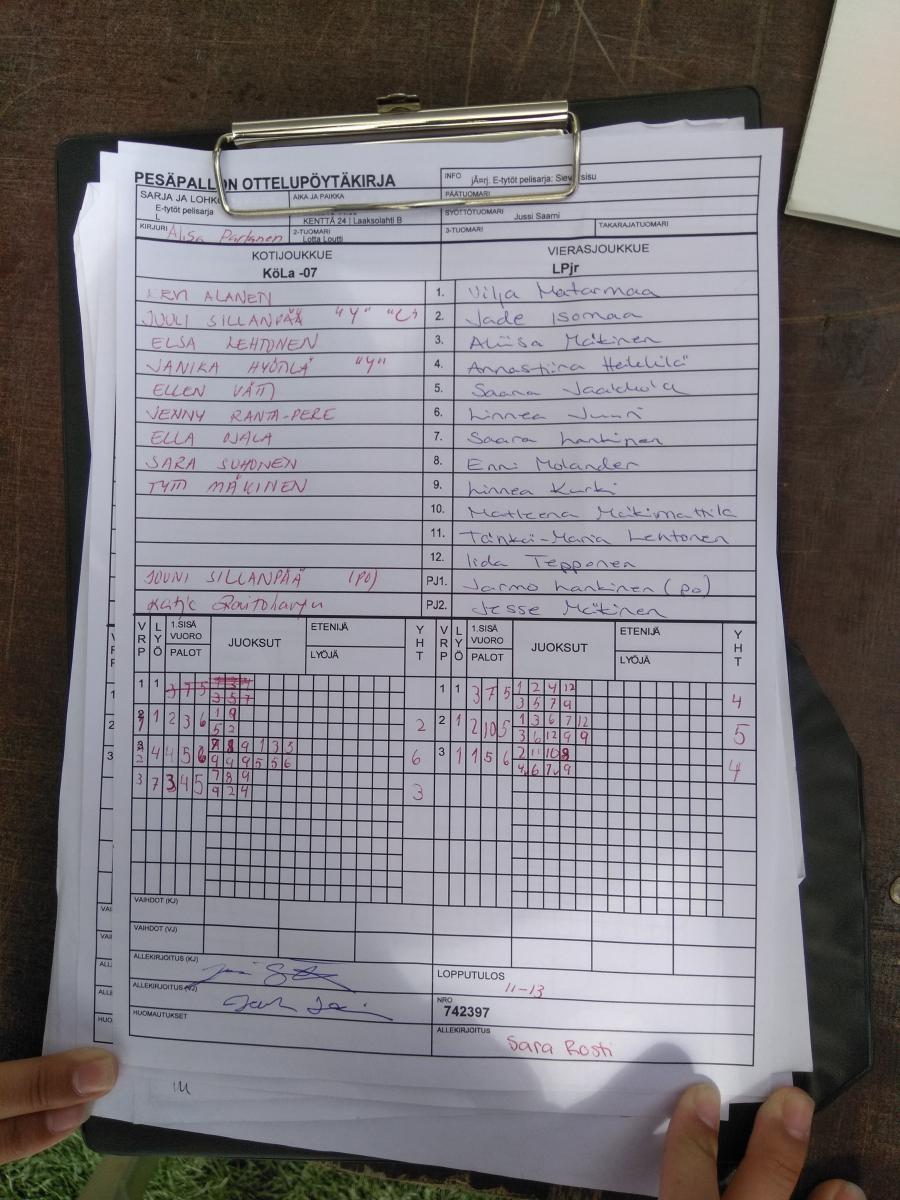 PESÄPALLON OTTELUPÖYTÄKIRJA
INFO jÃ¤rj. E-tytöt pelisarja:
SARJA JA LOHKO
AIKA JA PAIKKA
PÄÄTUOMARI
E-tytöt pelisarja
L
KENTTÄ 24 | Laaksolahti B
SYÖTTÖTUOMARI Jussi Saarni
KIRJURI Alisa Partanen
2-TUOMARI
Lotta Loutti
3-TUOMARI
TAKARAJATUOMARI
KOTIJOUKKUE VIERASJOUKKUE
KöLa -07 LPjr
ALANEN 1. Vilja Matarmaa
JUULI SILLANPÄÄ "Y" "C" 2. Jade Isomaa
ELSA LEHTONEN 3. Aliisa Mäkinen
JANIKA "Y" 4. Annastiina Heikkilä
ELLEN 5. Saana Jaakkola
JENNY RANTA-PERE 6. Linnea
ELLA OJALA 7. Saara Lankinen
SARA SUHONEN 8. Enni Molander
MÄKINEN 9. Linnea Kurki
10. Matleena Mäkimattila
11. Lehtonen
12. Iida Tepponen
JOUNI SILLANPÄÄ (PO) PJ1. Jarmo Lankinen (po)
PJ2. Jesse Mäkinen
VRP LYÖ 1.SISÄ VUORO PALOT JUOKSUT ETENIJÄ LYÖJÄ YHT VRP LYÖ 1.SISÄ VUORO PALOT JUOKSUT ETENIJÄ LYÖJÄ YHT
1 1 3 7 5 1 1 3 7 5 1 2 4 12
3 5 7 3 5 7 9 4
1 2 3 6 1 9 2 1 2 10 5 1 3 6 7 12
5 2 2 3 6 12 9 9 5
4 4 5 6 7 8 9 1 3 5 3 1 1 5 6 2 11 10 8
9 9 9 5 5 6 6 4 6 7 9 4
3 7 3 4 5 7 8 9
9 2 4 3
VAIHDOT (KJ)
VAIHDOT (VJ)
ALLEKIRJOITUS (KJ)
LOPPUTULOS
11-13
ALLEKIRJOITUS (VJ)
NRO
742397
HUOMAUTUKSET
ALLEKIRJOITUS
Sara Rosti